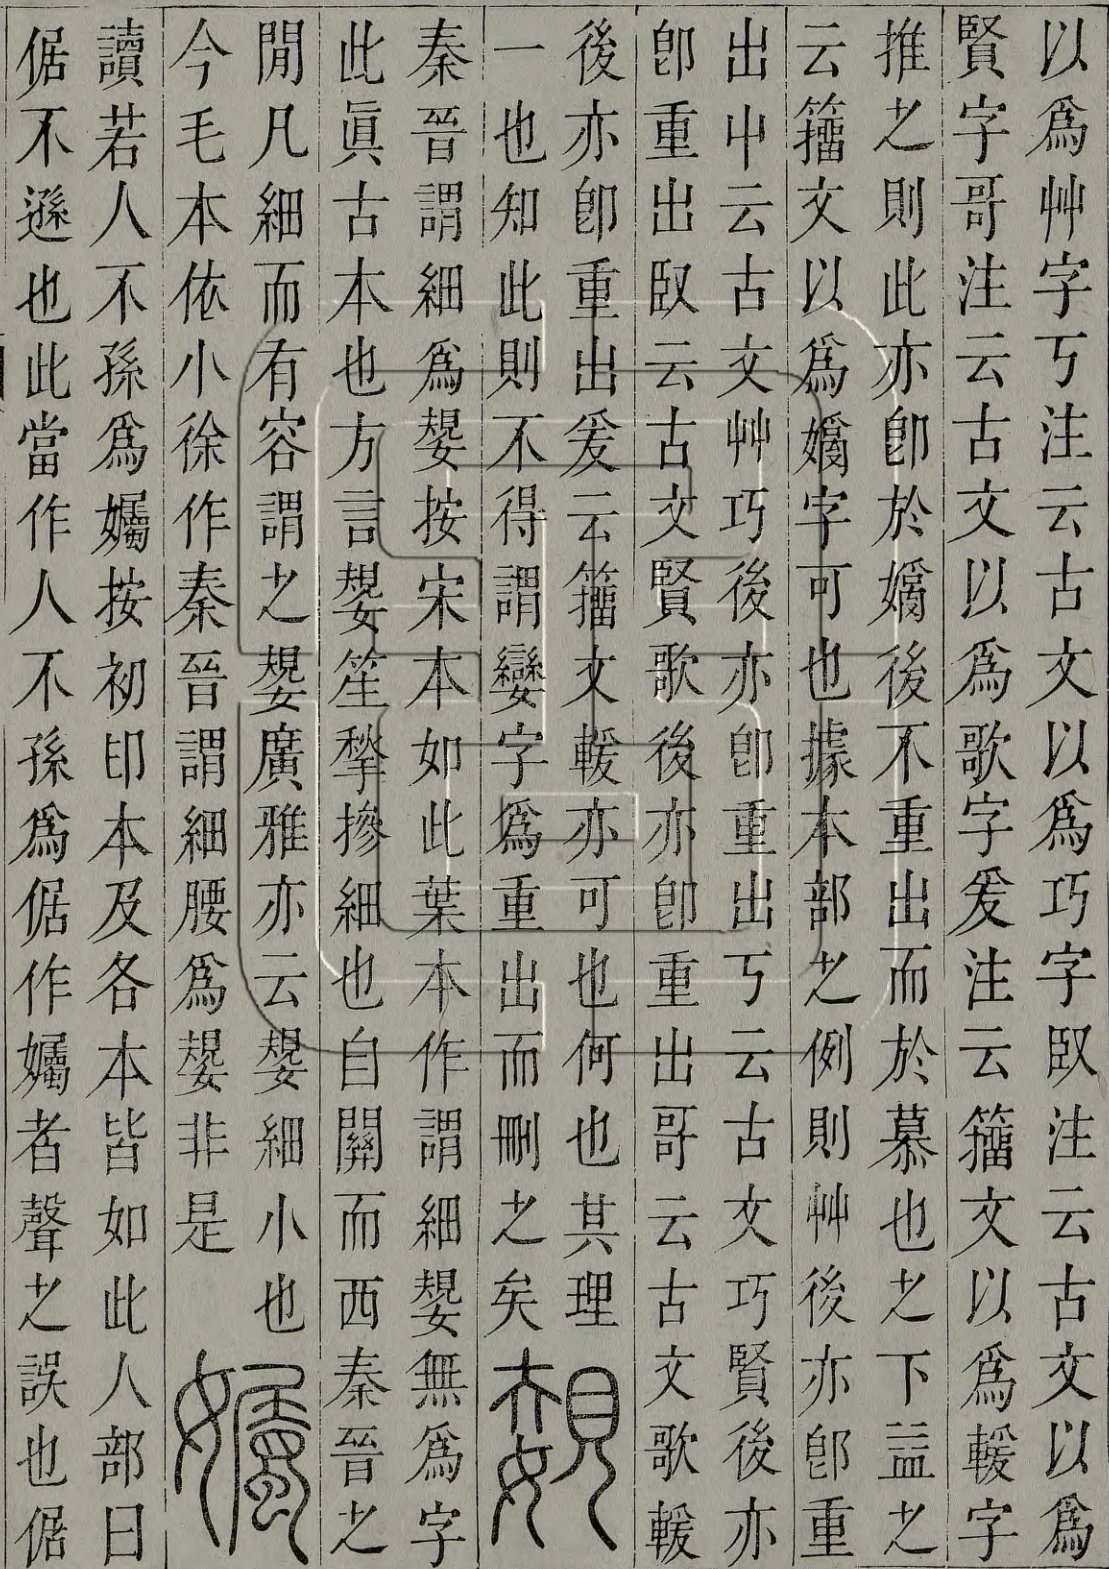 以爲艸字丂注云古文以爲巧字臤注云古文以爲
賢字哥注云古文以爲歌字爰注云籒文以爲轅字
推之則此亦卽於嫡後不重出而於慕也之下益之
云籒文以爲嫡字可也據本部之例則艸後亦卽重
出屮云古文艸巧後亦卽重出丂云古文巧賢後亦
卽重出臤云古文賢歌後亦卽重出哥云古文歌轅
後亦卽重出爰云籒文轅亦可也何也其理
一也知此則不得謂孌字爲重出而刪之矣
嫢
秦晉謂細爲嫢按宋本如此葉本作謂細嫢無爲字
此眞古本也方言嫢笙揫摻細也自關而西秦晉之
閒凡細而有容謂之嫢廣雅亦云嫢細小也
今毛本依小徐作秦晉謂細腰爲嫢非是
孎
讀若人不孫爲孎按初印本及各本皆如此人部曰
倨不遜也此當作人不孫爲倨作孎者聲之誤也倨